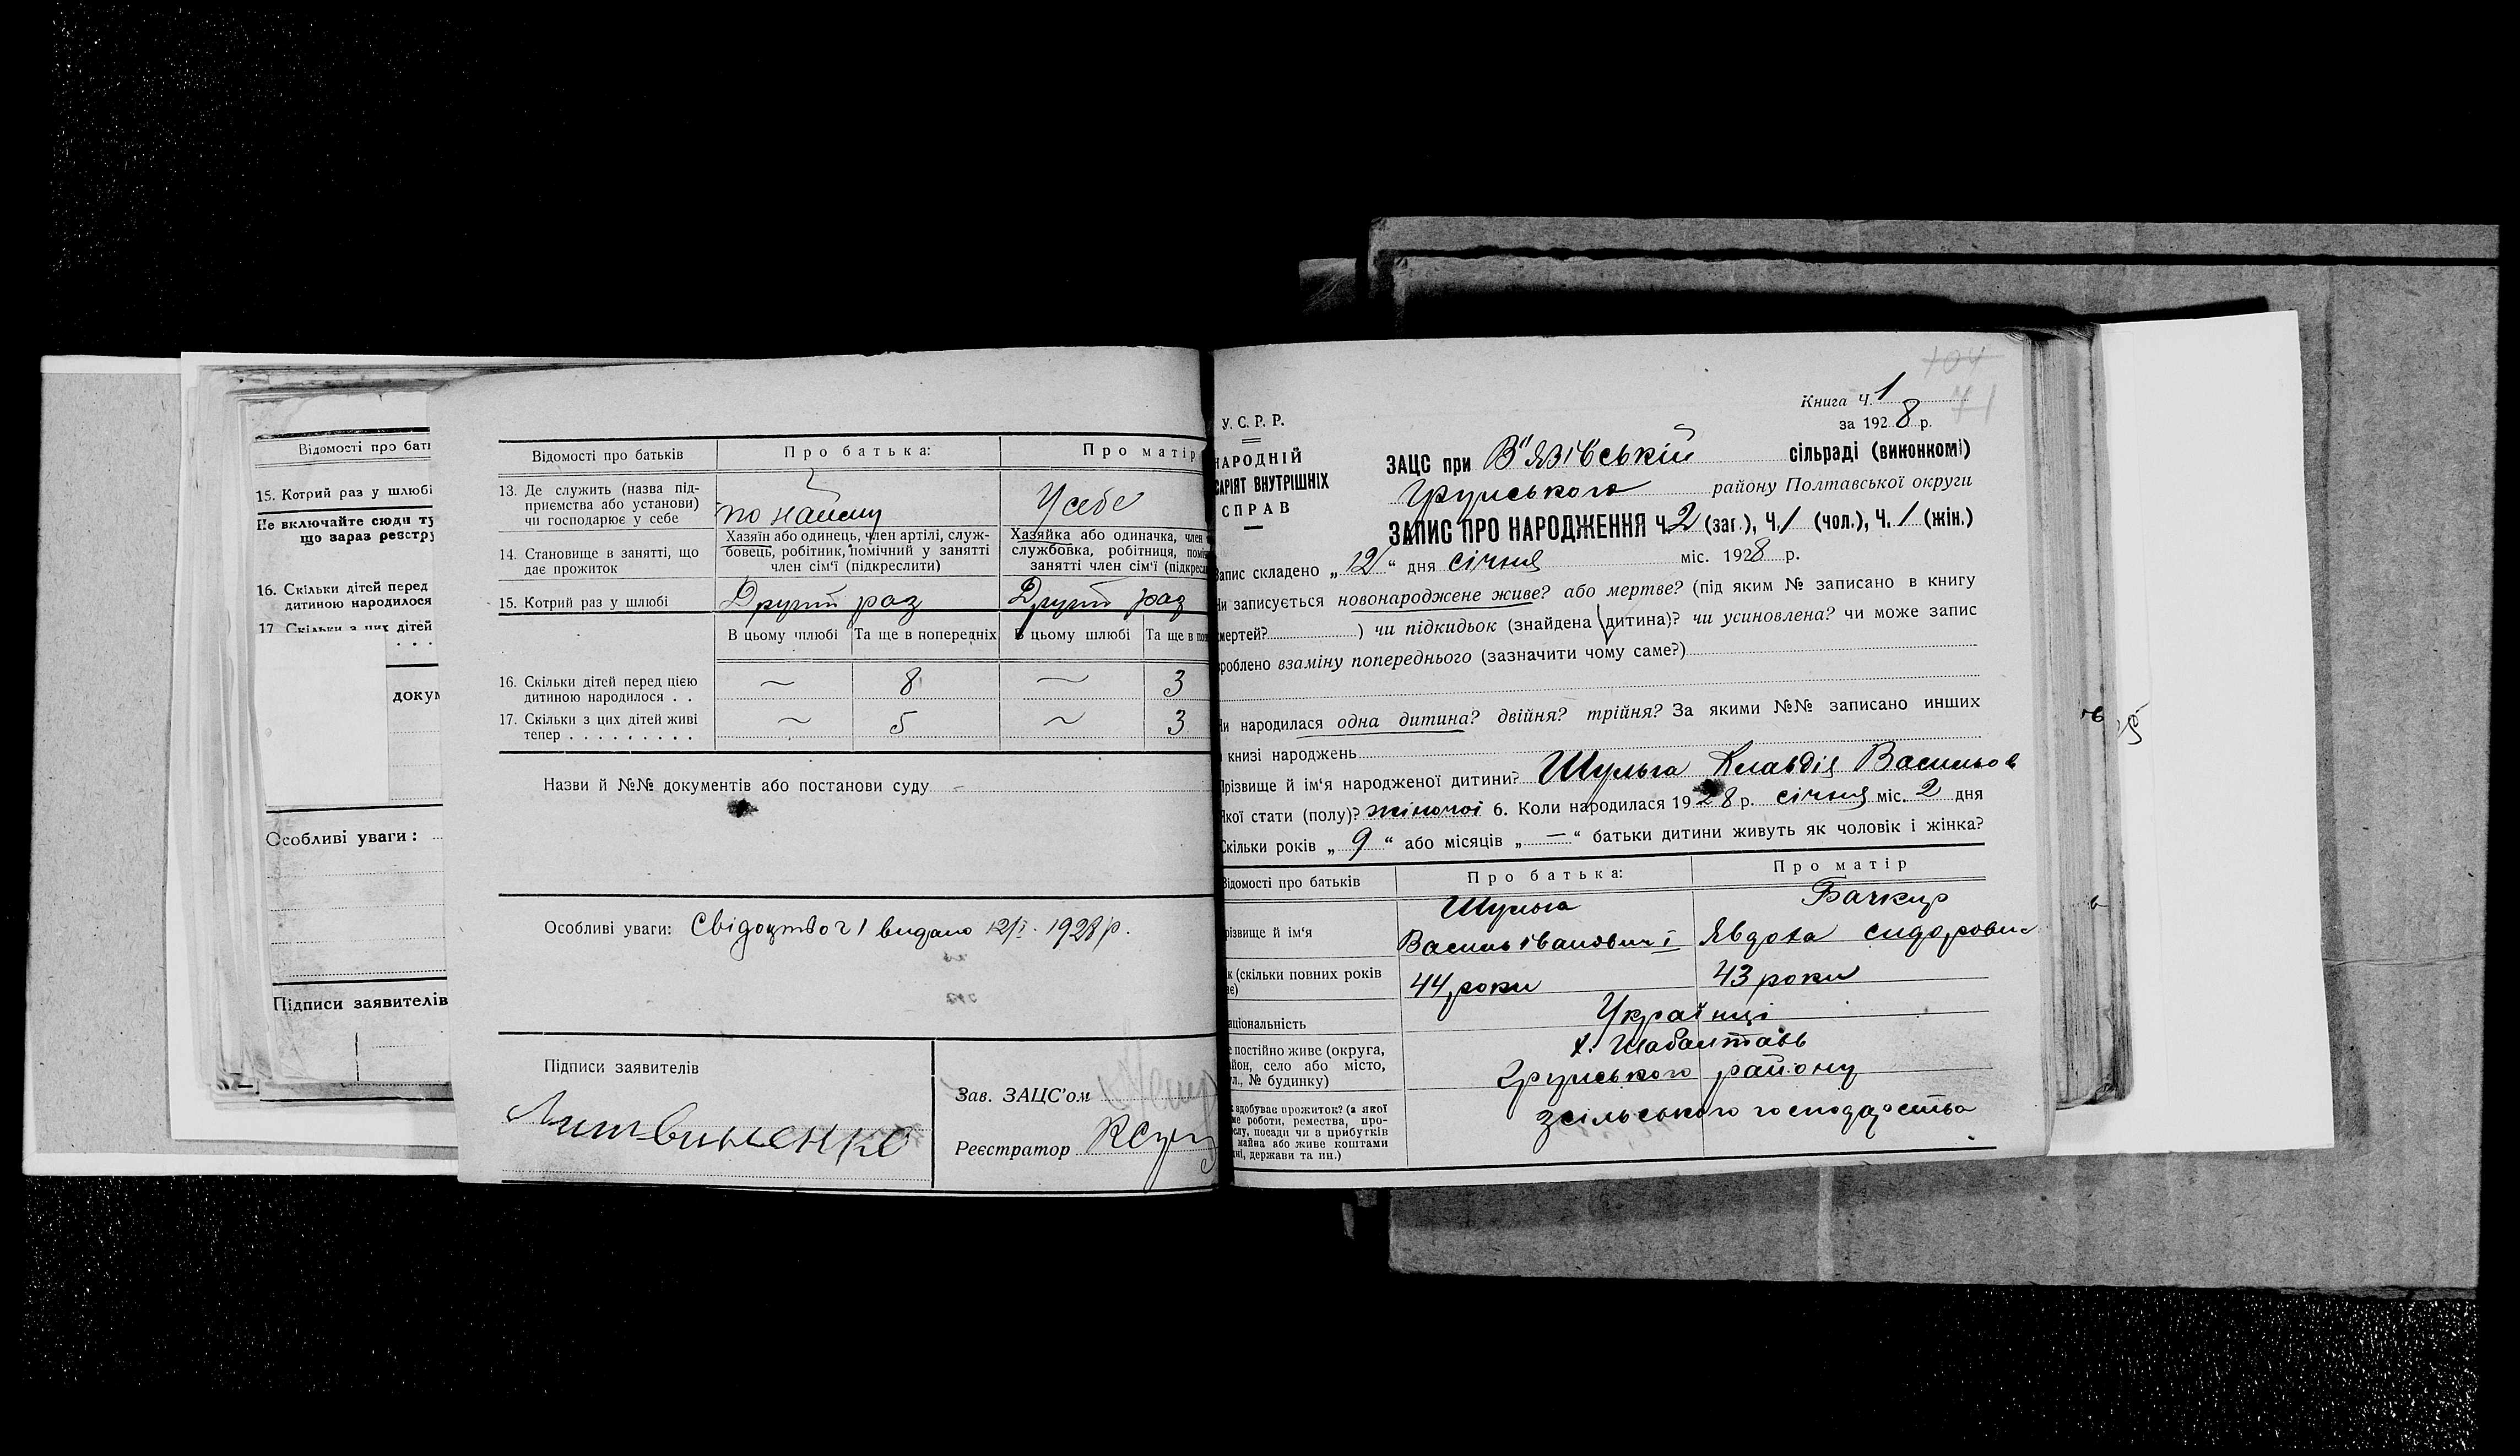 Відомості про бать
15. Котрий раз у шлюбі
Не включайте сюди ту
що зараз реєстру
16. Скільки дітей перед
дитиною народилося
17. Скільки з цих дітей
докум
Особливі уваги:
Підписи заявителів
Відомості про батьків Про батька: Про матір
13. Де служить (назва під-
приємства або установи)
чи господарює у себе
по найму У себе
14. Становище в занятті, що
дає прожиток
Хазяїн або одинець, член артілі, служ-
бовець, робітник, помічний у занятті
член сім'ї (підкреслити)
Хазяйка або одиначка, член
службовка, робітниця, помі
занятті член сім'ї (підкресл
15. Котрий раз у шлюбі Другий раз Другий раз
В цьому шлюбі Та ще в попередніх В цьому шлюбі Та ще в поп
16. Скільки дітей перед цією
дитиною народилося . . ~ 8 ~ 3
17. Скільки з цих дітей живі
тепер . . . . . . . . . ~ 5 ~ 3
Назви й №№ документів або постанови суду –
Особливі уваги: Свідоцтво ч 1 видано 12/I 1928 р.
Підписи заявителів
Литвиненко
Зав. ЗАЦС'ом
Реєстратор
104
71
Книга Ч. 1
за 1928 р.
У. С. Р. Р.
НАРОДНІЙ
САРІЯТ ВНУТРІШНІХ
СПРАВ
ЗАЦС при В'язівській сільраді (виконкомі)
Грунського району Полтавської округи
ЗАПИС ПРО НАРОДЖЕННЯ Ч. 2 (заг.), Ч. 1 (чол.), Ч. 1 (жін.)
Запис складено „12“ дня січня міс. 1928 р.
Чи записується новонароджене живе? або мертве? (під яким № записано в книгу
смертей? ) чи підкидьок (знайдена дитина)? чи усиновлена? чи може запис
зроблено взаміну попереднього (зазначити чому саме?)
Чи народилася одна дитина? двійня? трійня? За якими №№ записано инших
книзі народжень
Прізвище й ім'я народженої дитини? Шульга Клавдія Васильов
Якої стати (полу)? жіночої 6. Коли народилася 1928 р. січня міс. 2 дня
Скільки років „9“ або місяців „—“ батьки дитини живуть як чоловік і жінка?
Відомості про батьків Про батька: Про матір
різвище й ім'я
Шульга
Василь Іванович і
Бачкир
Явдоха Сидорович
ік (скільки повних років
є)
44 роки 43 роки
аціональність Українці
е постійно живе (округа,
айон, село або місто,
ул., № будинку)
Грунського району
к здобуває прожиток? (з якої
ме роботи, ремества, про-
слу, посади чи з прибутків
майна або живе коштами
дні, держави та ин.)
з сільського господарства